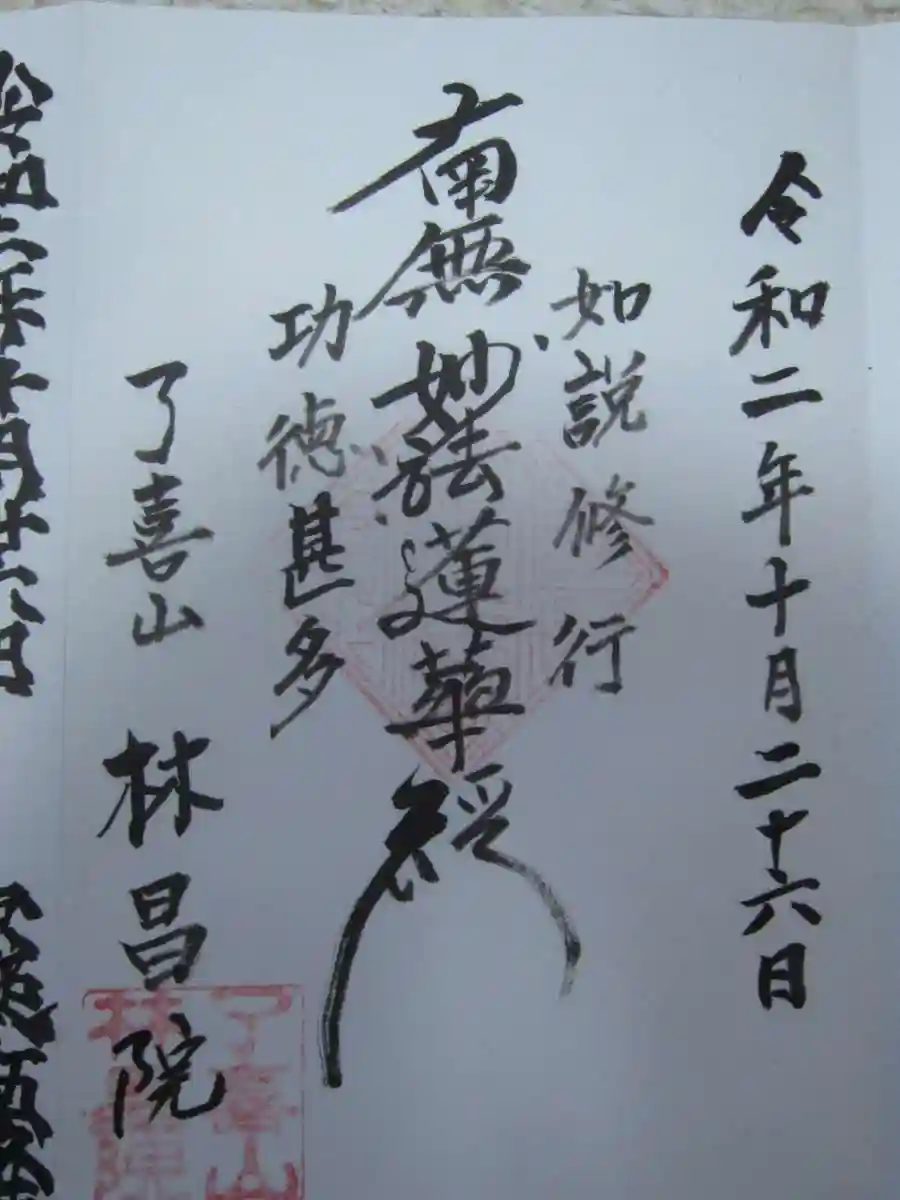 令和二年十月二十六日
如説修行
南無妙法蓮華経
功徳甚多
了喜山 林昌院
了喜山
林昌院